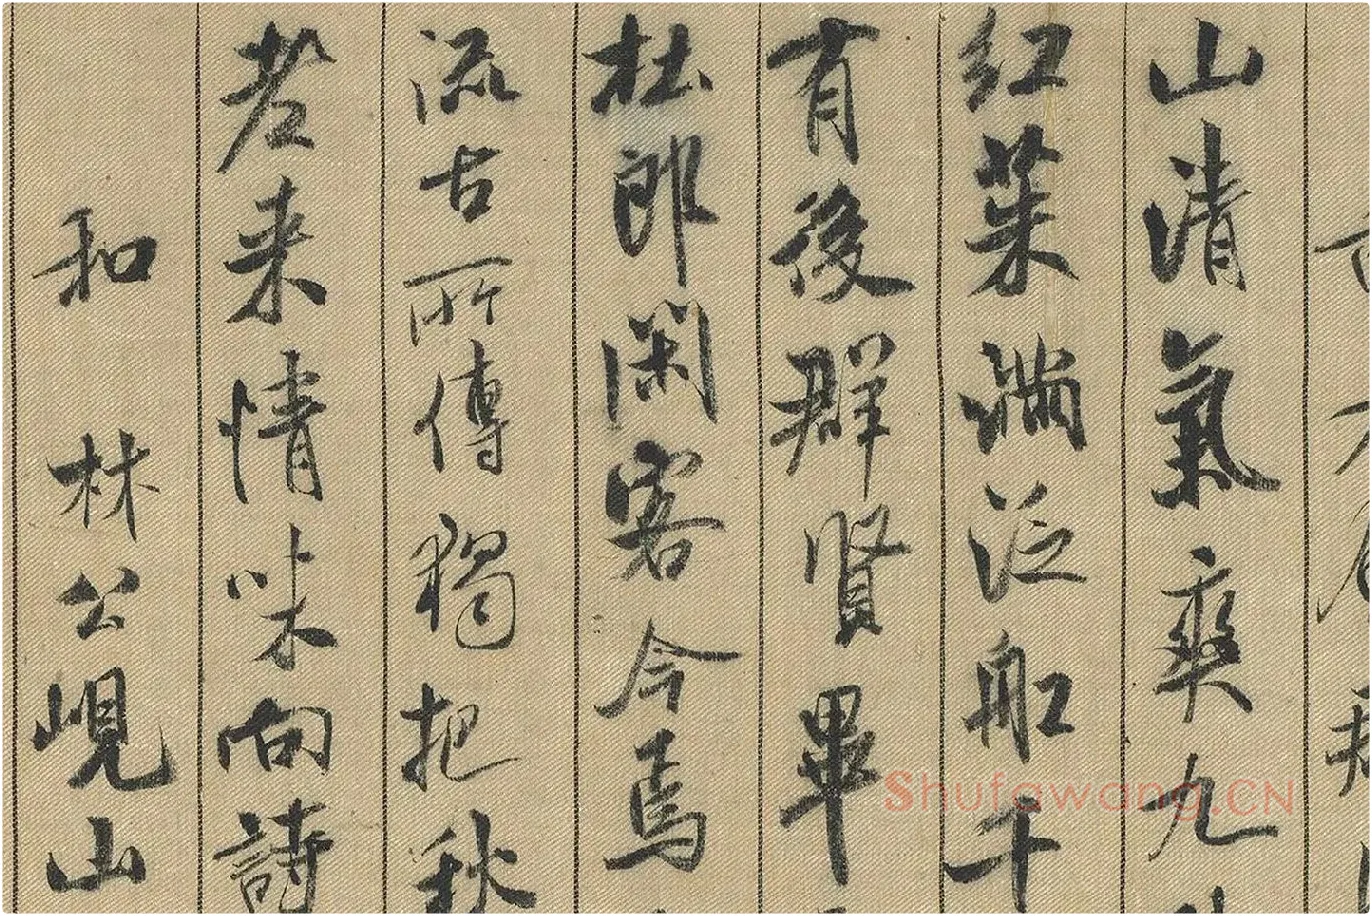 山清氣爽九
紅葉滿泛船千
有後群賢畢
杜郎閑客今焉
流古所傳獨把秋
英來情味向詩
和林公峴山
Shufawang.CN